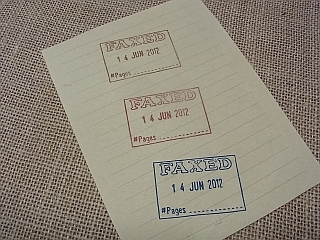 FAXED
14 JUN 2012
#Pages
FAXED
14 JUN 2012
#Pages
FAXED
14 JUN 2012
#Pages